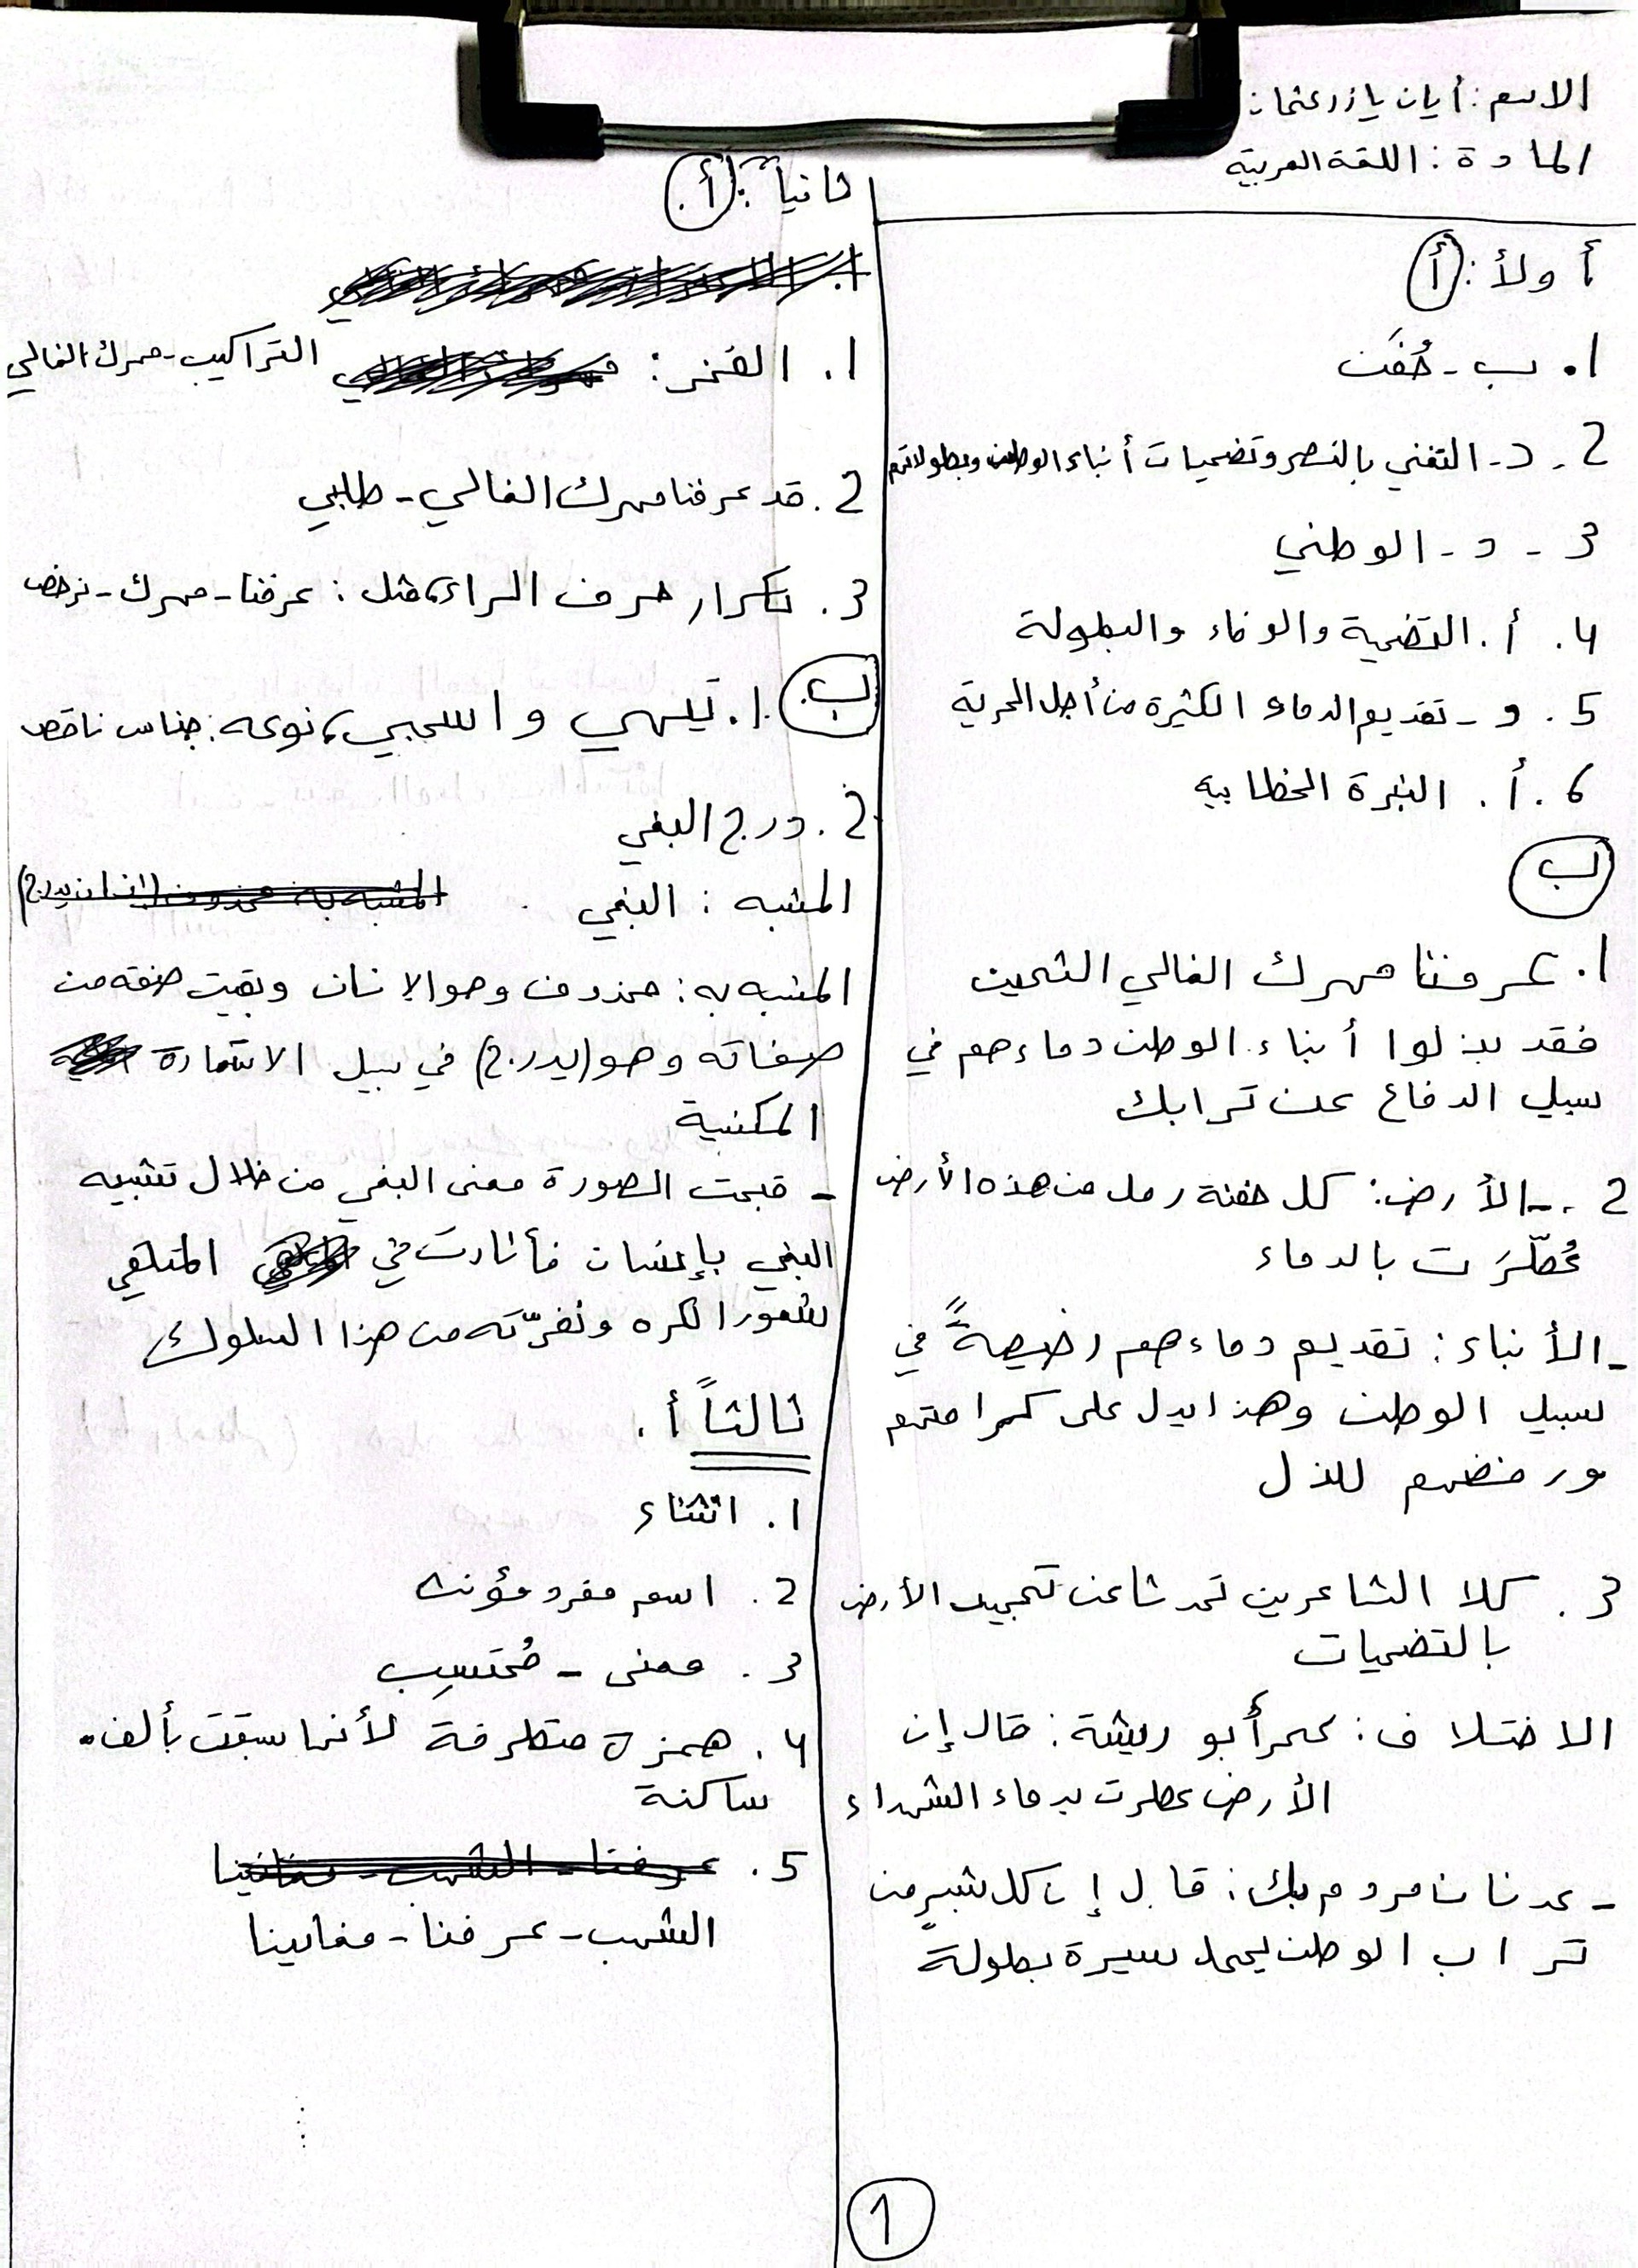 الاسم: أيان يازر عثمان
المادة: اللغة العربية
أولاً: أ
1. ب - حُفَّت
2. د - التغني بالنصر وتضحيات أبناء الوطن وبطولاتهم
3 - د - الوطني
4. أ. التضحية والوفاء والبطولة
5. د - تقديم الدماء الكثيرة من أجل الحرية
6. أ. النبرة الخطابيه
ب
1. عرفنا مهرك الغالي الثمين
فقد بذلوا أبناء الوطن دماءهم في
سبيل الدفاع عن ترابك
2. - الأرض: كل حفنة رمل من هذه الأرض
عُطّرَت بالدماء
- الأبناء: تقديم دماءهم رخيصةً في
سبيل الوطن وهذا يدل على كرامتهم
ورفضهم للذل
3. كلا الشاعرين تحدثا عن تمجيد الأرض
بالتضحيات
الاختلاف: عمر أبو ريشة: قال إن
الأرض عطرت بدماء الشهداء
- عدنان مردم بك: قال إن كل شبرٍ من
تراب الوطن يحمل سيرة بطولة
ثانياً: أ.
1. الفخر: التراكيب - مهرك الغالي
2. قد عرفنا مهرك الغالي - طلبي
3. تكرار حرف الراء، مثل: عرفنا - مهرك - نرخص
ب. 1. تيهي و اسحبي، نوعه: جناس ناقص
2. درج البغي
المشبه: البغي
المشبه به: محذوف وهو الإنسان وبقيت صفه من
صفاته وهو (يدرج) في سبيل الاستعارة
المكنية
- قبحت الصورة معنى البغي من خلال تشبيه
البغي بإنسان فأثارت في المتلقي
شعور الكره ونفرّته من هذا السلوك
ثالثاً أ.
1. انثناء
2. اسم مفرد مؤنث
3. معنى - مُحتسِب
4. همزة متطرفة لأنها سبقت بألف
ساكنة
5. عرفنا - الشهب - مغانينا
الشهب - عرفنا - مغانينا
1